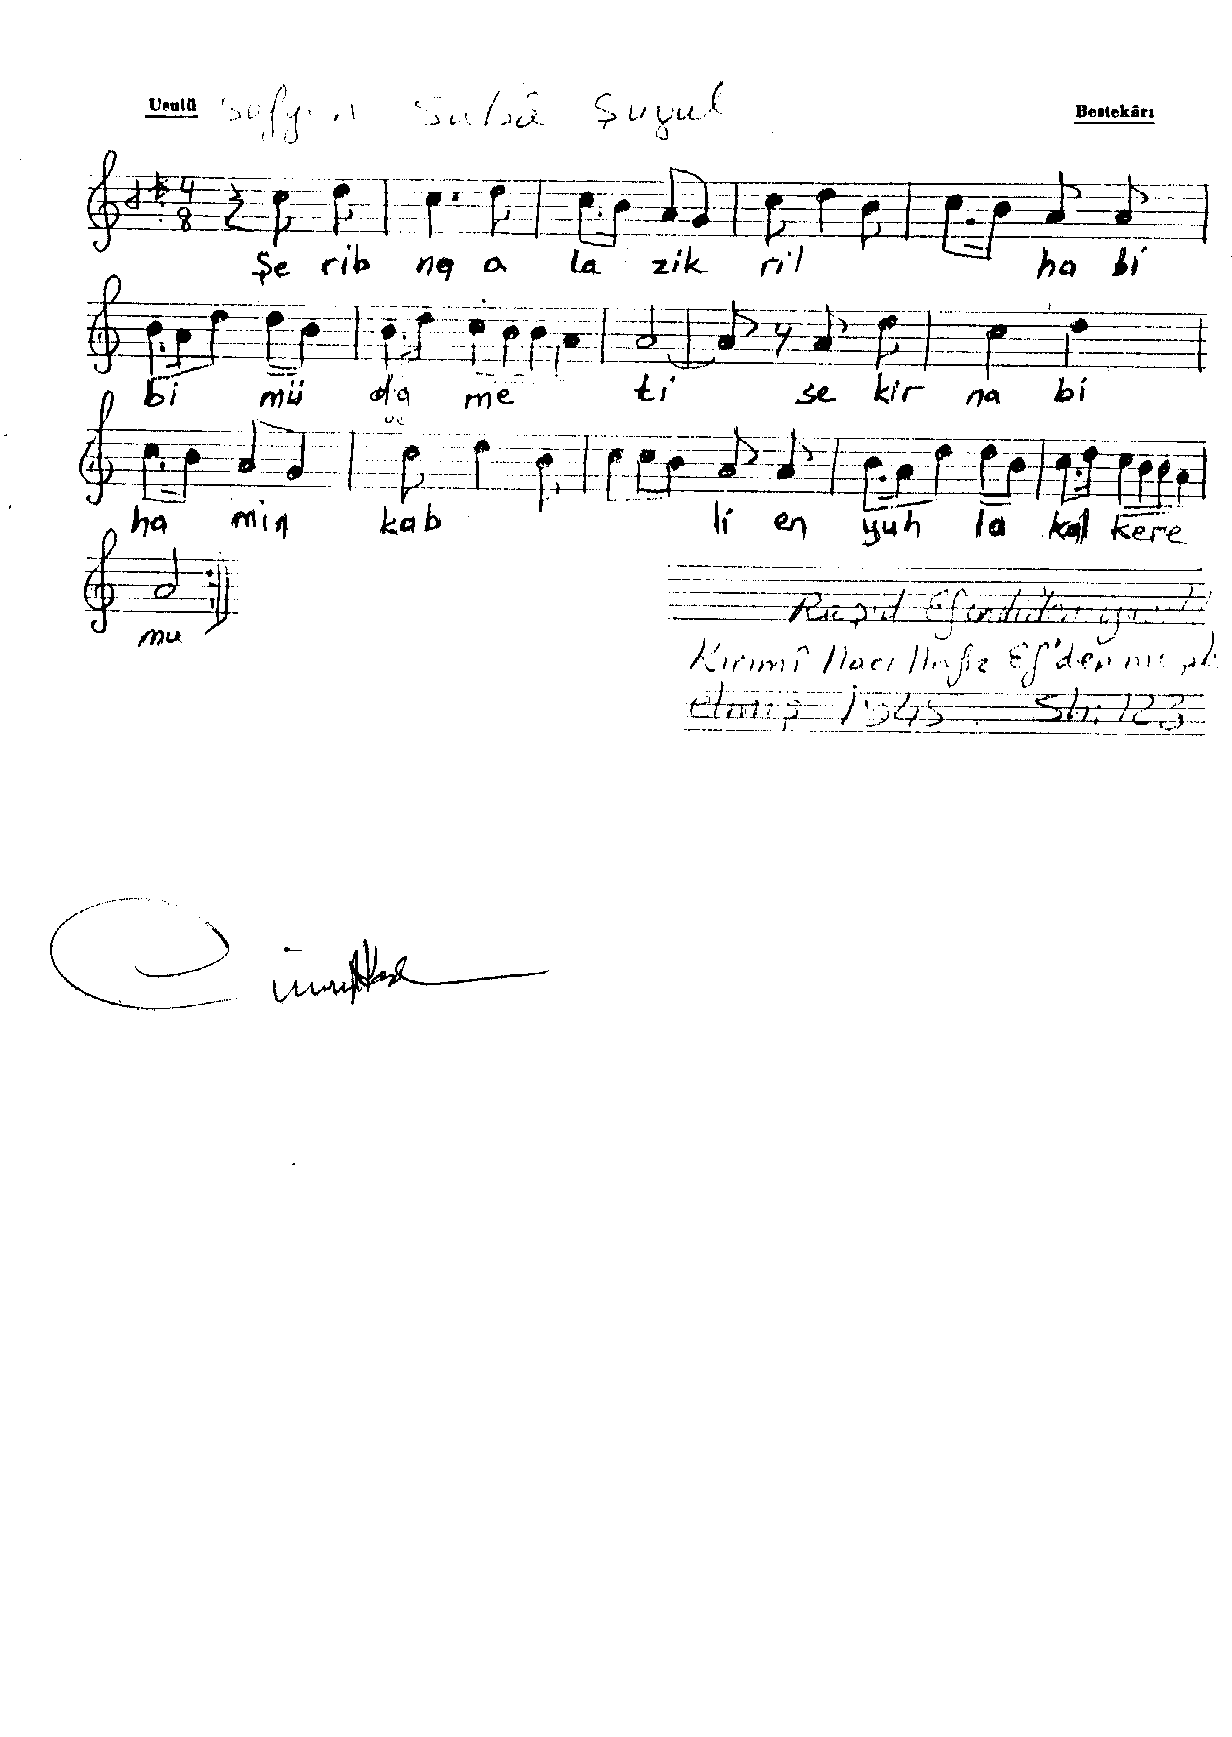 Usulü Sofyan Sabâ Şuğul Bestekârı
4 8
Şe rib na a la zik ril ha bi
bi mü da me ti se kir na bi
ha min kab li en yuh la kal kere
mu
Raşid Efendi'den
Kırımî Hacı Hafız Ef'den
etmiş 1345 Sh: 123